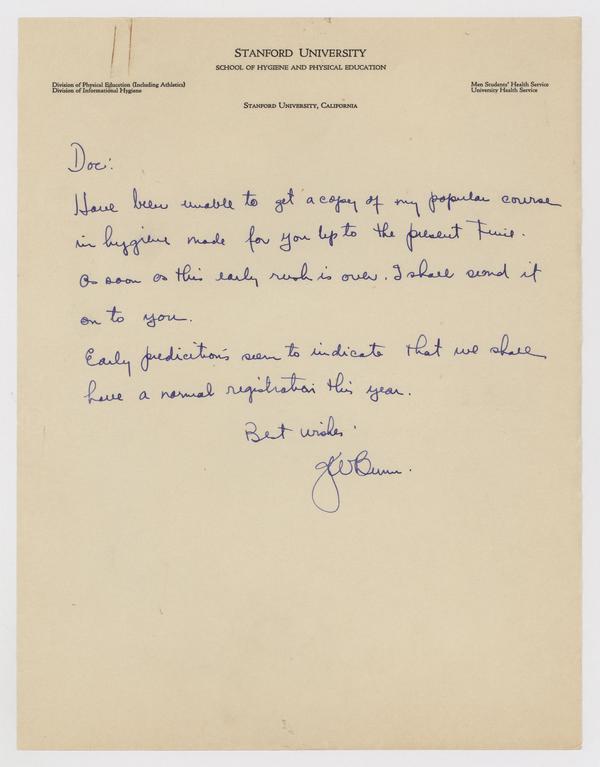 STANFORD UNIVERSITY
SCHOOL OF HYGIENE AND PHYSICAL EDUCATION
Division of Physical Education (Including Athletics)
Division of Informational Hygiene
Men Students' Health Service
University Health Service
STANFORD UNIVERSITY, CALIFORNIA
Doc:
Have been unable to get a copy of my popular course
in hygiene made for you up to the present time.
As soon as this early rush is over. I shall send it
on to you.
Early predicitions seem to indicate that we shall
have a normal registration this year.
Best wishes.
JWBunn.